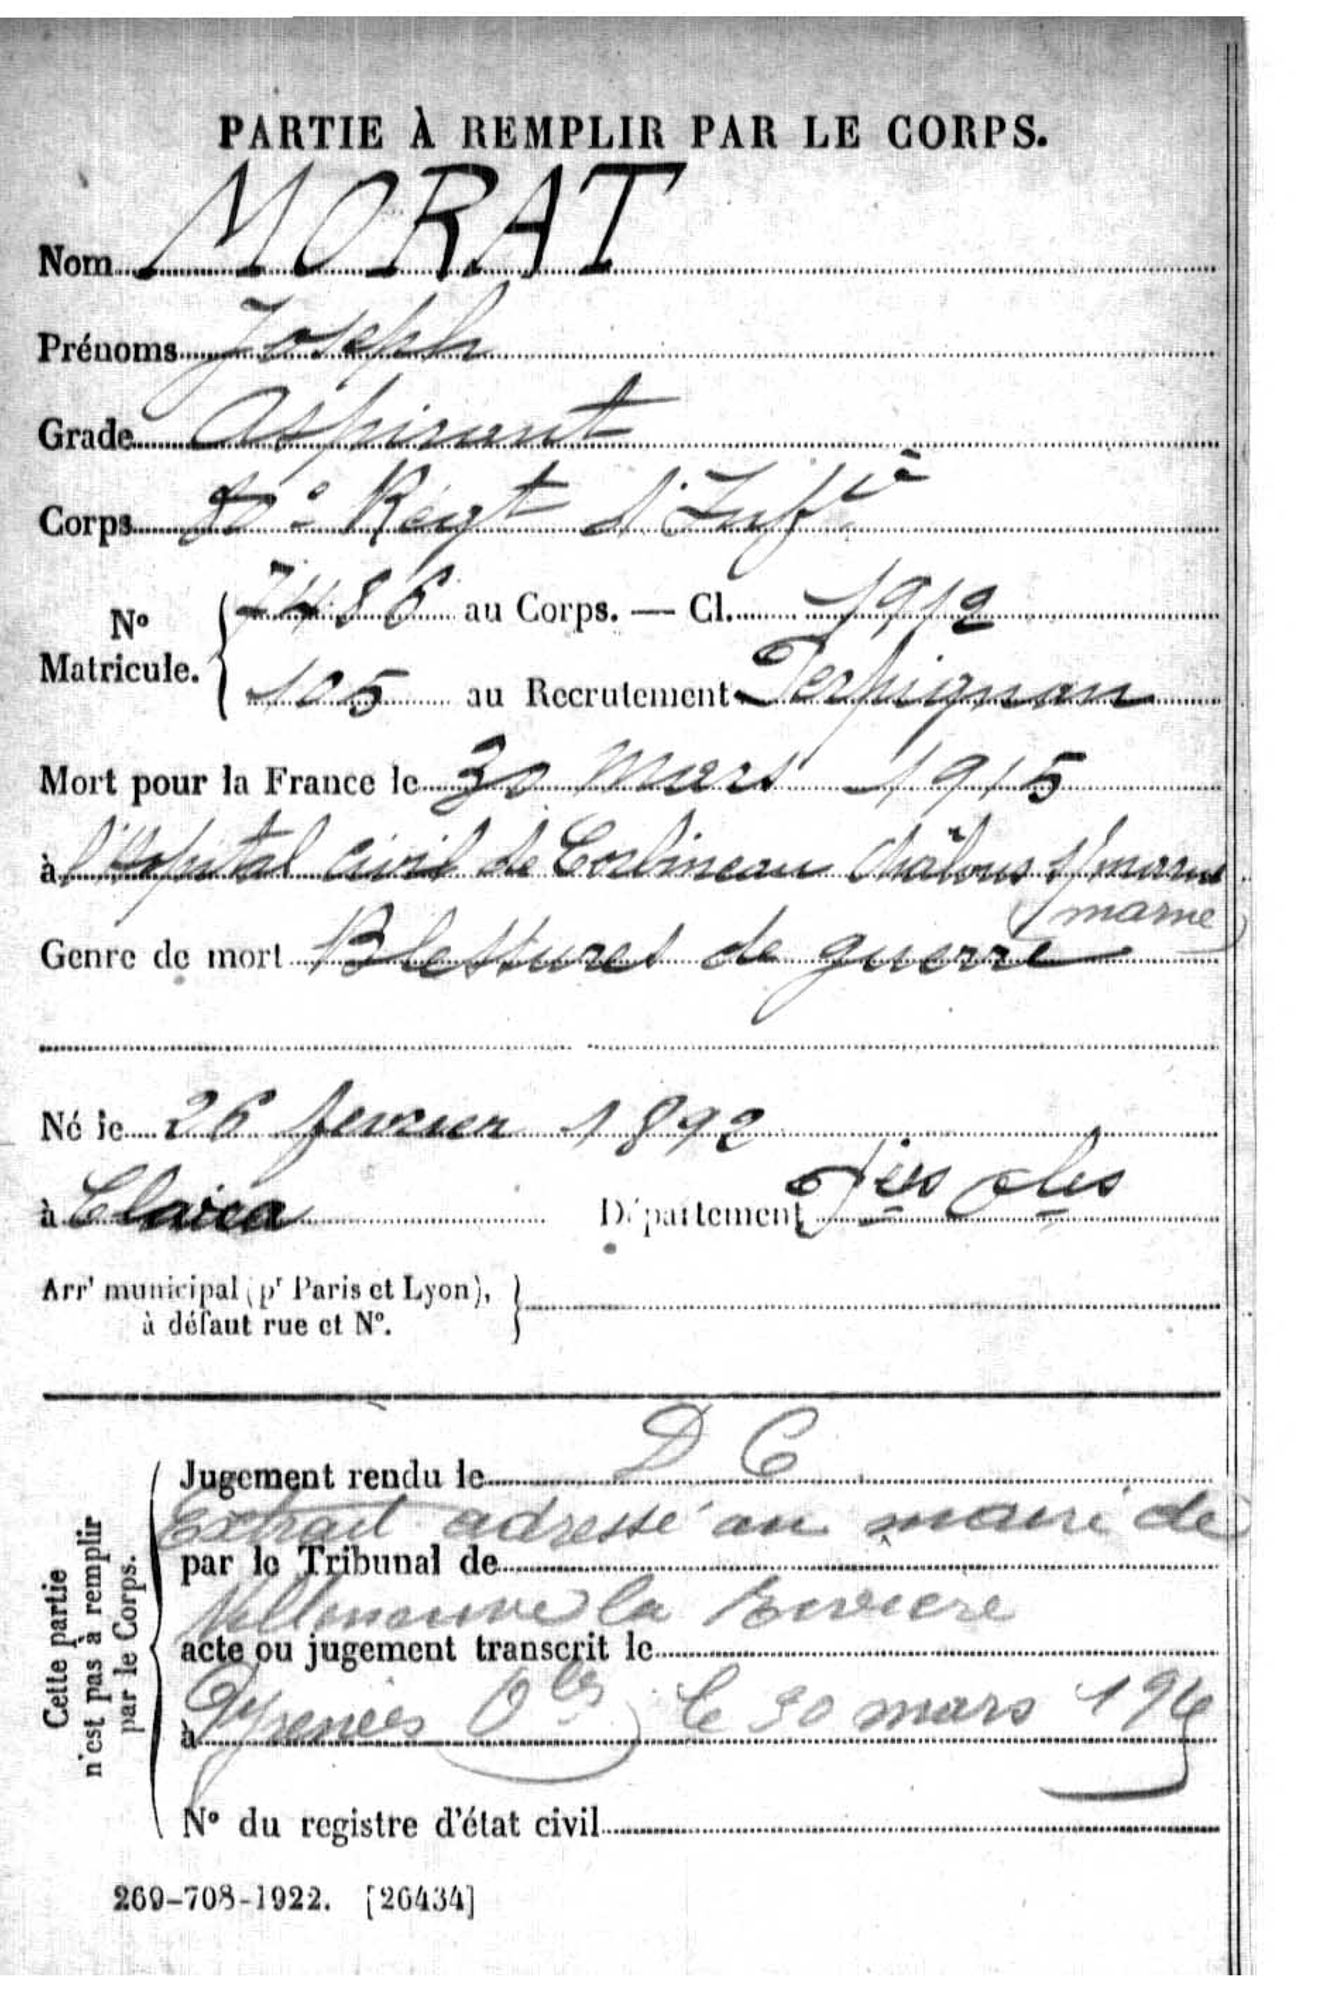 PARTIE À REMPLIR PAR LE CORPS.
Nom MORAT
Prénoms Joseph
Grade Aspirant
Corps Régt d'Infie
No Matricule. 7486 au Corps. — Cl. 1912
105 au Recrutement Perpignan
Mort pour la France le 30 mars 1915
à l'Hôpital civil de Corbineau Châlons s/ marne
(marne)
Genre de mort Blessures de guerre
Né le 26 fevrier 1892
à Claira Département Pées Oles
Arrt municipal (pr Paris et Lyon), à défaut rue et No.
Cette partie n'est pas à remplir par le Corps.
Jugement rendu le D C
Extrait adressé au maire de
par le Tribunal de
Villeneuve la Riviere
acte ou jugement transcrit le
à Pyrenées Oles) le 30 mars
No du registre d'état civil
269-708-1922. [26434]